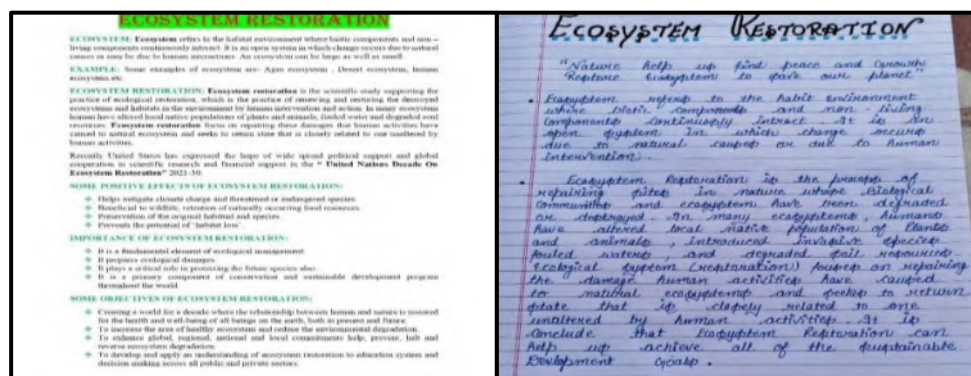 ECOSYSTEM RESTORATION
ECOSYSTEM: Ecosystem refers to the habitat environment where biotic components and non –
living components continuously interact. It is an open system in which change occurs due to natural
causes or may be due to human interactions. An ecosystem can be large as well as small.
EXAMPLE: Some examples of ecosystem are- Agro ecosystem , Desert ecosystem, human
ecosystem etc.
ECOSYSTEM RESTORATION: Ecosystem restoration is the scientific study supporting the
practice of ecological restoration, which is the practice of renewing and restoring the destroyed
ecosystems and habitats in the environment by human intervention and action. In many ecosystem
human have altered local native populations of plants and animals, fouled water and degraded soil
resources. Ecosystem restoration focus on repairing these damages that human activities have
caused to natural ecosystem and seeks to return state that is closely related to one unaltered by
human activities.
Recently United States has expressed the hope of wide spread political support and global
cooperation in scientific research and financial support in the " United Nations Decade On
Ecosystem Restoration" 2021-30.
SOME POSITIVE EFFECTS OF ECOSYSTEM RESTORATION:
Helps mitigate climate change and threatened or endangered species.
Beneficial to wildlife, retention of naturally occurring food resources.
Preservation of the original habitat and species.
Prevents the potential of 'habitat loss'.
IMPORTANCE OF ECOSYSTEM RESTORATION:
It is a fundamental element of ecological management.
It prepares ecological damages.
It plays a critical role in protecting the future species also.
It is a primary component of conservation and sustainable development program
throughout the world.
SOME OBJECTIVES OF ECOSYSTEM RESTORATION:
Creating a world for a decade where the relationship between human and nature is restored
for the health and well-being of all beings on the earth, both in present and future.
To increase the area of healthy ecosystem and reduce the environmental degradation.
To enhance global, regional, national and local commitments help, prevent, halt and
reverse ecosystem degradation.
To develop and apply an understanding of ecosystem restoration to education system and
decision making across all public and private sectors.
ECOSYSTEM RESTORATION
"Nature help us find peace and Growth
Restore Ecosystem to save our planet"
Ecosystem refers to the habit environment
where biotic components and non living
components continuously intract. It is an
open system in which change occurs
due to natural causes or due to human
intervention.
Ecosystem Restoration is the process of
repairing sites in nature whose Biological
Communities and ecosystem have been degraded
or destroyed. In many ecosystems, humans
have altered local native population of Plants
and animals, introduced invasive species
fouled waters, and degraded soil resources.
Ecological system (restoration) focuses on repairing
the damage human activities have caused
to natural ecosystems and seeks to return
state that is closely related to one
unaltered by human activities. It is
conclude that Ecosystem Restoration can
help us achieve all of the sustainable
Development Goals.